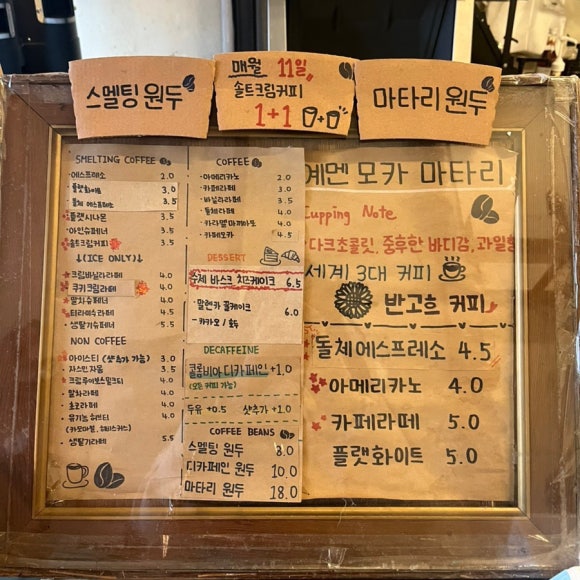 스멜팅 원두
매월 11일,
솔트크림커피
1+1
마타리 원두
SMELTING COFFEE
에스프레소 2.0
플랫화이트 3.0
돌체 에스프레소 3.5
플랫시나몬 3.5
아인슈페너 3.5
솔트크림커피 3.5
↓(ICE ONLY)↓
크림바닐라라떼 4.0
쿠키크림라떼 4.0
말차슈페너 4.0
티라미수라떼 4.0
쌩딸기슈페너 5.5
NON COFFEE
아이스티 (샷추가 가능) 3.0
자스민자몽 3.5
크림루이보스밀크티 4.0
말차라떼 4.0
초코라떼 4.0
유기농 허브티 4.0
쌩딸기라떼 5.5
COFFEE
아메리카노 2.0
카페라떼 3.0
바닐라라떼 3.5
돌체라떼 4.0
카라멜마끼아또 4.0
카페모카 4.5
DESSERT
수제 바스크 치즈케이크 6.5
말렌카 꿀케이크 6.0
- 카카오 / 호두
DECAFFEINE
콜롬비아 디카페인 +1.0
(모든 커피 가능)
두유 +0.5 샷추가 +1.0
COFFEE BEANS
스멜팅 원두 8.0
디카페인 원두 10.0
마타리 원두 18.0
예멘 모카 마타리
Cupping Note
다크초콜릿, 중후한 바디감, 과일향
세계 3대 커피
반고흐 커피
돌체에스프레소 4.5
아메리카노 4.0
카페라떼 5.0
플랫화이트 5.0